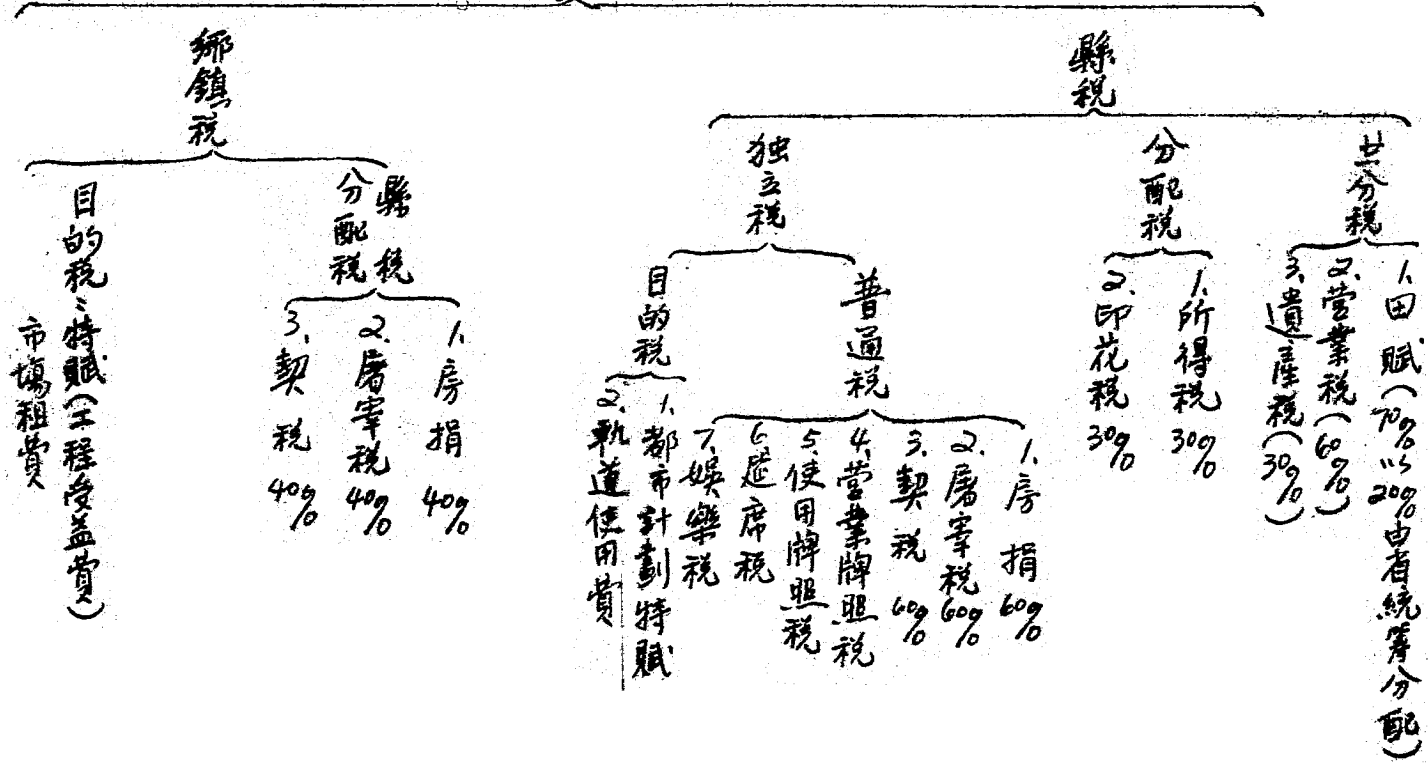 縣税
共分税
1.田賦(70%以20%由省統筹分配)
2.营業税(60%)
3.遺產税(30%)
分配税
1.所得税30%
2.印花税30%
独立税
普通税
1.房捐60%
2.屠宰税60%
3.契税60%
4.营業牌照税
5.使用牌照税
6.筵席税
7.娛樂税
目的税
1.都市計劃特賦
2.軌道使用費
鄉鎮税
縣税
分配税
1.房捐40%
2.屠宰税40%
3.契税40%
目的税:特賦(工程受益費)
市場租費